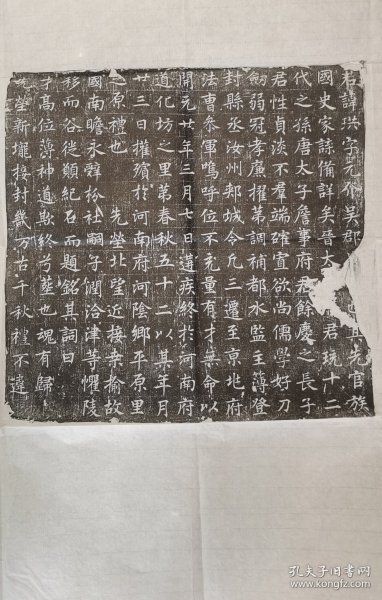 君諱洪字元作吳郡官族
國史家諜備詳矣晉太君玩十二
代之孫唐太子詹事府君餘慶之長子
君性貞淡不群端確寡欲尚儒學好刀
劒弱冠孝廉擢第調補都水監主簿登
封縣丞汝州郟城令凡三遷至京兆府
法曹叅軍嗚呼位不充量有才無命以
開元廿年三月七日遘疾終於河南府
道化坊之里第春秋五十二以其年月
廿三日權殯於河南府河陰鄉平原里
之原禮也先塋北望近接桒榆故
國南瞻永辭枌社嗣子潤洽津等懼陵
移而谷徙顒紀石而題銘其詞曰
才高位薄神道欺終兮塟也魂有歸
塋新壠掩封幾万古千秋禮不違
孔夫子旧书网
www.kongfz.com